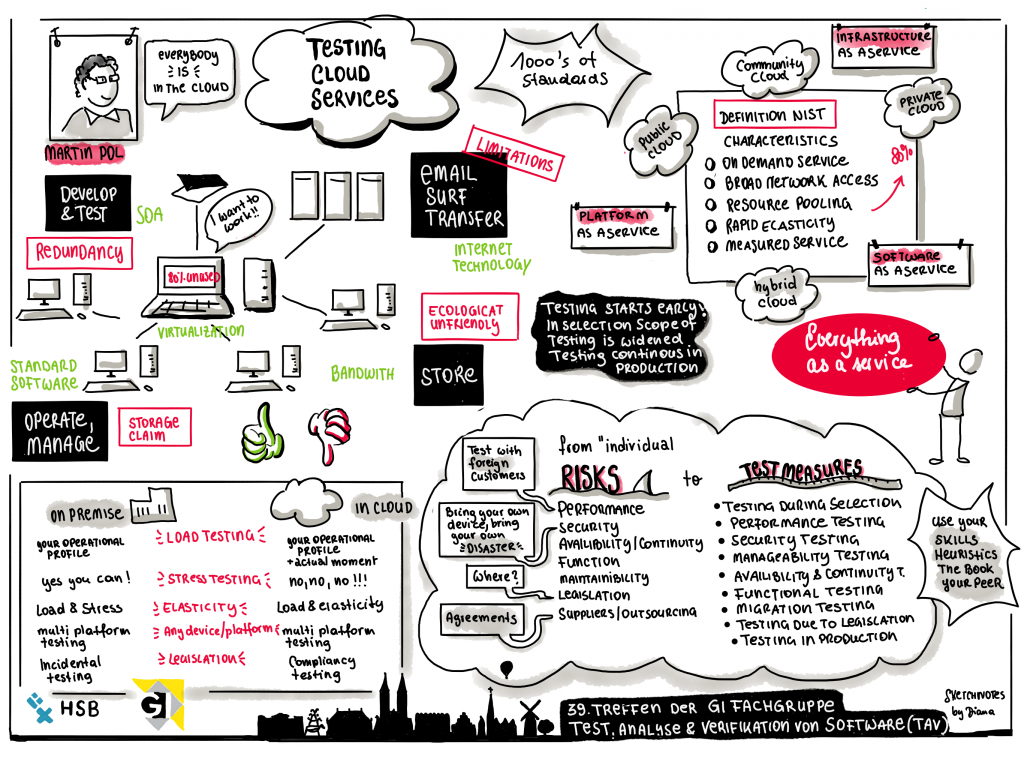 EVERYBODY
IS
IN THE CLOUD
MARTIN POL
TESTING
CLOUD
SERVICES
1000's of
Standards
INFRASTRUCTURE
AS ASERVICE
Community
Cloud
PRIVATE
CLOUD
Public
CLOUD
DEFINITION NIST
CHARACTERISTICS
ON DEMAND SERVICE
BROAD NETWORK ACCESS
RESOURCE POOLING
RAPID ECASTICITY
MEASURED SERVICE
80%
PLATFORM
AS ASERVICE
SOFTWARE
AS ASERVICE
hybrid
cloud
DEVELOP
& TEST
SOA
REDUNDANCY
I want to
work!!
80% unused
VIRTUALIZATION
STANDARD
SOFTWARE
BANDWITH
OPERATE,
MANAGE
STORAGE
CLAIM
LIMITATIONS
EMAIL
SURF
TRANSFER
INTERNET
TECHNOLOGY
ECOLOGICAT
UNFRIENDLY
STORE
TESTING STARTS EARLY:
IN SELECTION SCOPE OF
TESTING IS WIDENED
TESTING CONTINOUS IN
PRODUCTION
Everything
as a service
ON PREMISE
IN CLOUD
YOUR OPERATIONAL
PROFILE
LOAD TESTING
YOUR OPERATIONAL
PROFILE
+actual moment
yes you can!
STRESS TESTING
no, no, no !!!
Load & Stress
ELASTICITY
Load & elasticity
multi platform
testing
Any device/platform
multi platform
testing
Incidental
testing
LEGISLATION
Compliancy
testing
Test with
foreign
Customers
Bring your own
device, bring
your own
DISASTER
Where?
Agreements
from "individual
RISKS
to
TEST MEASURES
PERFORMANCE
SECURITY
AVAILIBILITY/CONTINUITY
FUNCTION
MAINTAINIBILITY
LEGISLATION
SUPPLIERS/OUTSOURCING
• TESTING DURING SELECTION
• PERFORMANCE TESTING
• SECURITY TESTING
• MANAGEABILITY TESTING
• AVAILIBILITY & CONTINUITY T.
• FUNCTIONAL TESTING
• MIGRATION TESTING
• TESTING DUE TO LEGISLATION
• TESTING IN PRODUCTION
USE YOUR
SKILLS
HEURISTICS
THE BOOK
YOUR PEER
HSB
GI
39. TREFFEN DER GI FACHGRUPPE
TEST, ANALYSE & VERIFIKATION VON SOFTWARE (TAV)
SKETCHNOTES
by Diana